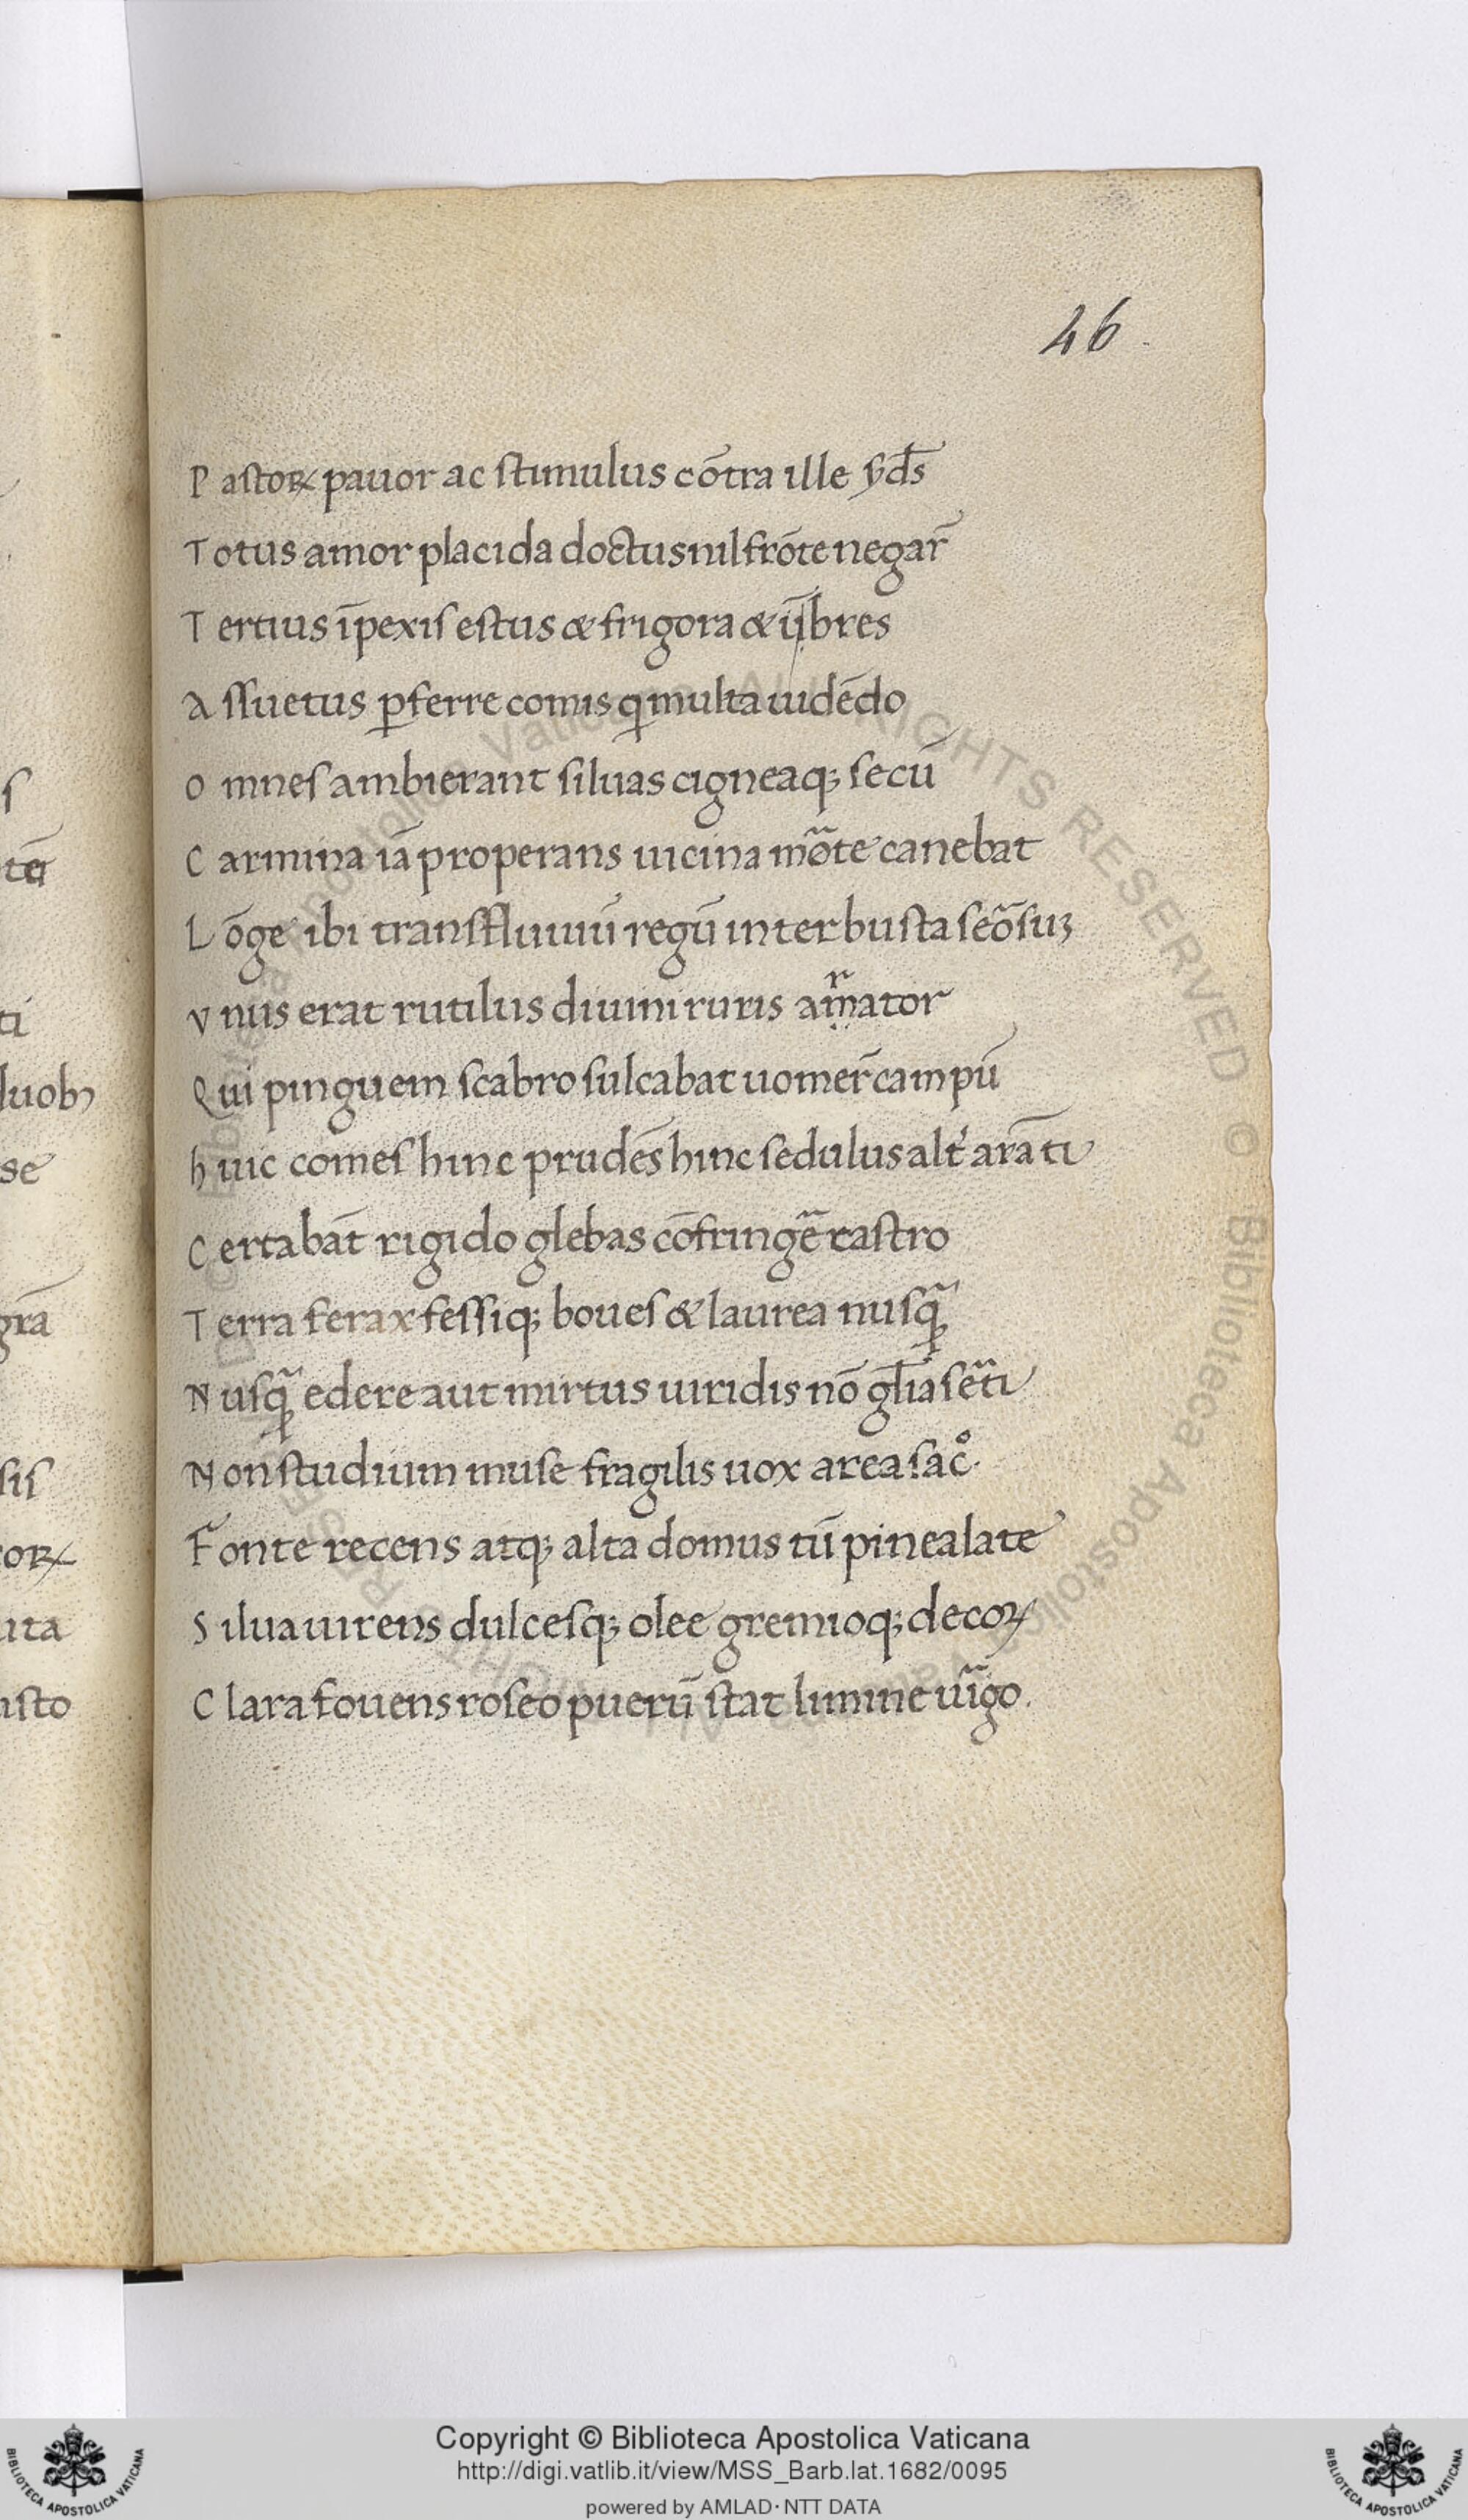 46
s
Pastoꝝ pauor ac stimulus cōtra ille ȳds̄
Totus amor placida doctus nil frōte negar̄
Tertius īpexis estus & frigora & ījbres
Assuetus ꝑferre comis qi multa uidēdo
Omnes ambierant siluas cigneaqꝫ secū
tē
Carmina iā properans uicina mōte canebat
Lōge ibi transfluuiū regū inter busta seōsuꝫ
ti
Vnus erat rutilus diuini ruris amrator
luobꝰ
Qui pinguem scabro sulcabat uomer̄ campū
se
Huic comes hinc prudēs hinc sedulus alt' arāti
Certabāt rigido glebas cōfringē rastro
grā
Terra ferax fessiqꝫ boues & laurea nusqᷓ
Nusqᷓ edere aut mirtus uiridis nō gl̄ia sēti
sis
Non studium muse fragilis uox area sac͛.
oꝝ
Fonte recens atqꝫ alta domus tū pinea late
uta
Silua uirens dulcesqꝫ olee gremioqꝫ decoꝝ
usto
Clara fouens roseo puerū stat lumine uīgo.
Copyright © Biblioteca Apostolica Vaticana
http://digi.vatlib.it/view/MSS_Barb.lat.1682/0095
powered by AMLAD·NTT DATA
BIBLIOTECA APOSTOLICA VATICANA
BIBLIOTECA APOSTOLICA VATICANA